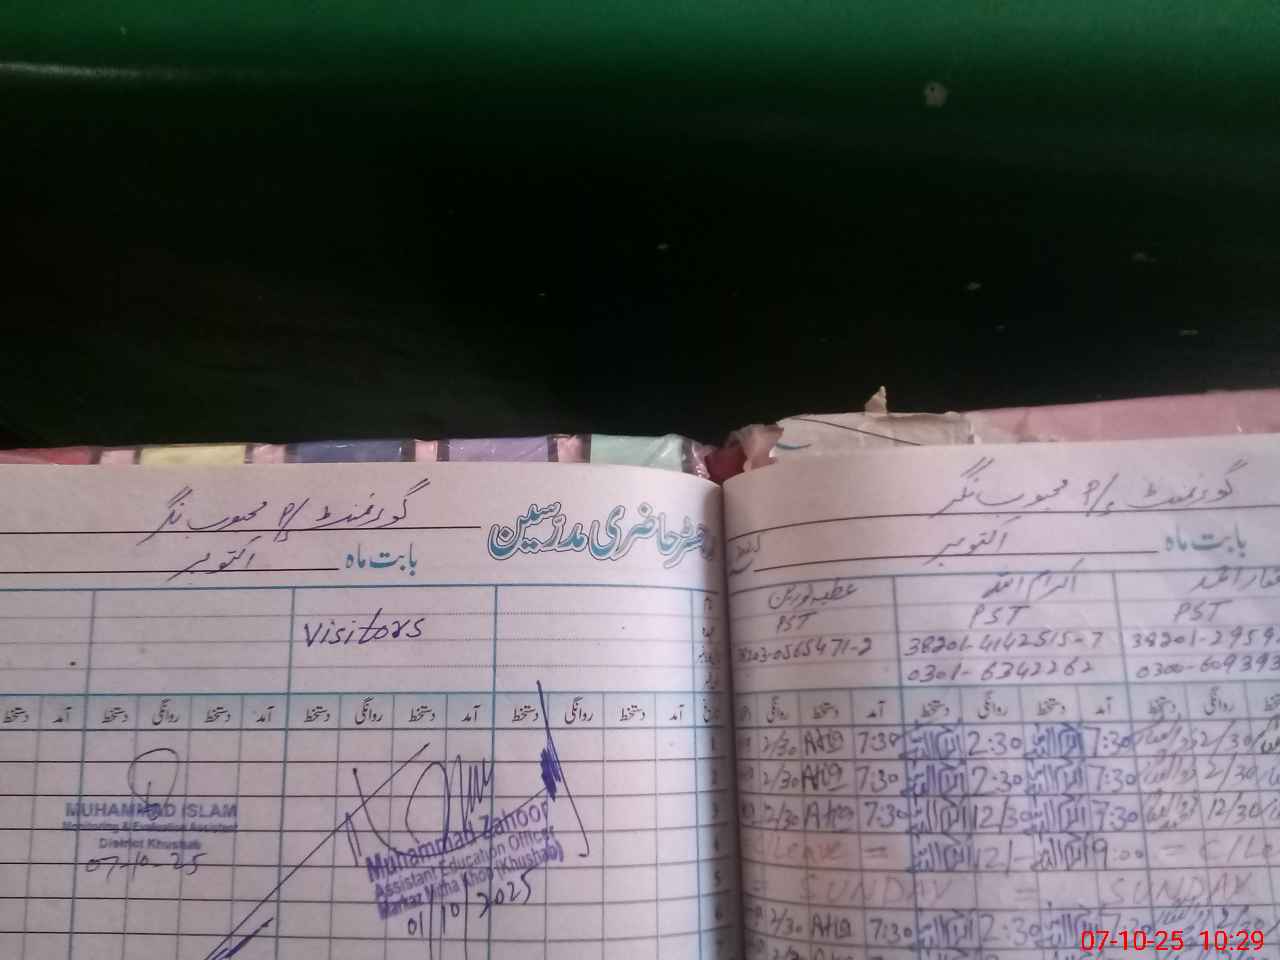 گورنمنٹ P/S محبوب نگر
رجسٹر حاضری مدرسین
بابت ماہ اکتوبر
Visitors
آمد دستخط روانگی دستخط آمد دستخط روانگی دستخط آمد دستخط
MUHAMMAD ISLAM
Monitoring & Evaluation Assistant
District Khushab
07-10-25
Muhammad Zahoor
Assistant Education Officer
Markaz Mitha Khoo (Khushab)
01/10/2025
گورنمنٹ P/S محبوب نگر
بابت ماہ اکتوبر
اکرام اللہ عطیہ نورین
PST PST PST
38203-0565471-2 38201-4142515-7 38201-2959
0301-6342262 0300-609393
روانگی دستخط آمد دستخط روانگی دستخط آمد دستخط روانگی
1 2/30 Attia 7:30 2:30 7:30 2/30
2 2/30 Attia 7:30 2:30 7:30 2/30
3 2/30 Attia 7:30 12/30 7:30 12/30
4 C/Leave = 12/- 9:00 = C/Le
5 = SUNDAY = SUNDAY
6 2/30 Attia 7:30 2:30 7:30 2/30
07-10-25 10:29